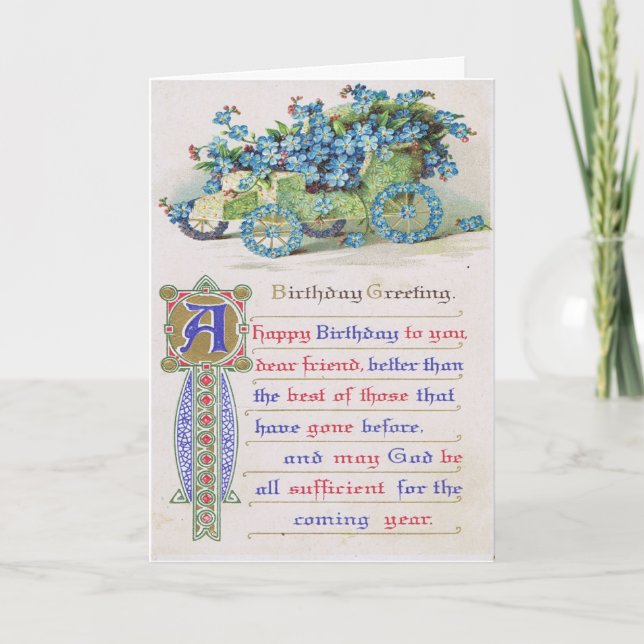 Birthday Greeting.
A
Happy Birthday to you,
dear friend, better than
the best of those that
have gone before,
and may God be
all sufficient for the
coming year.